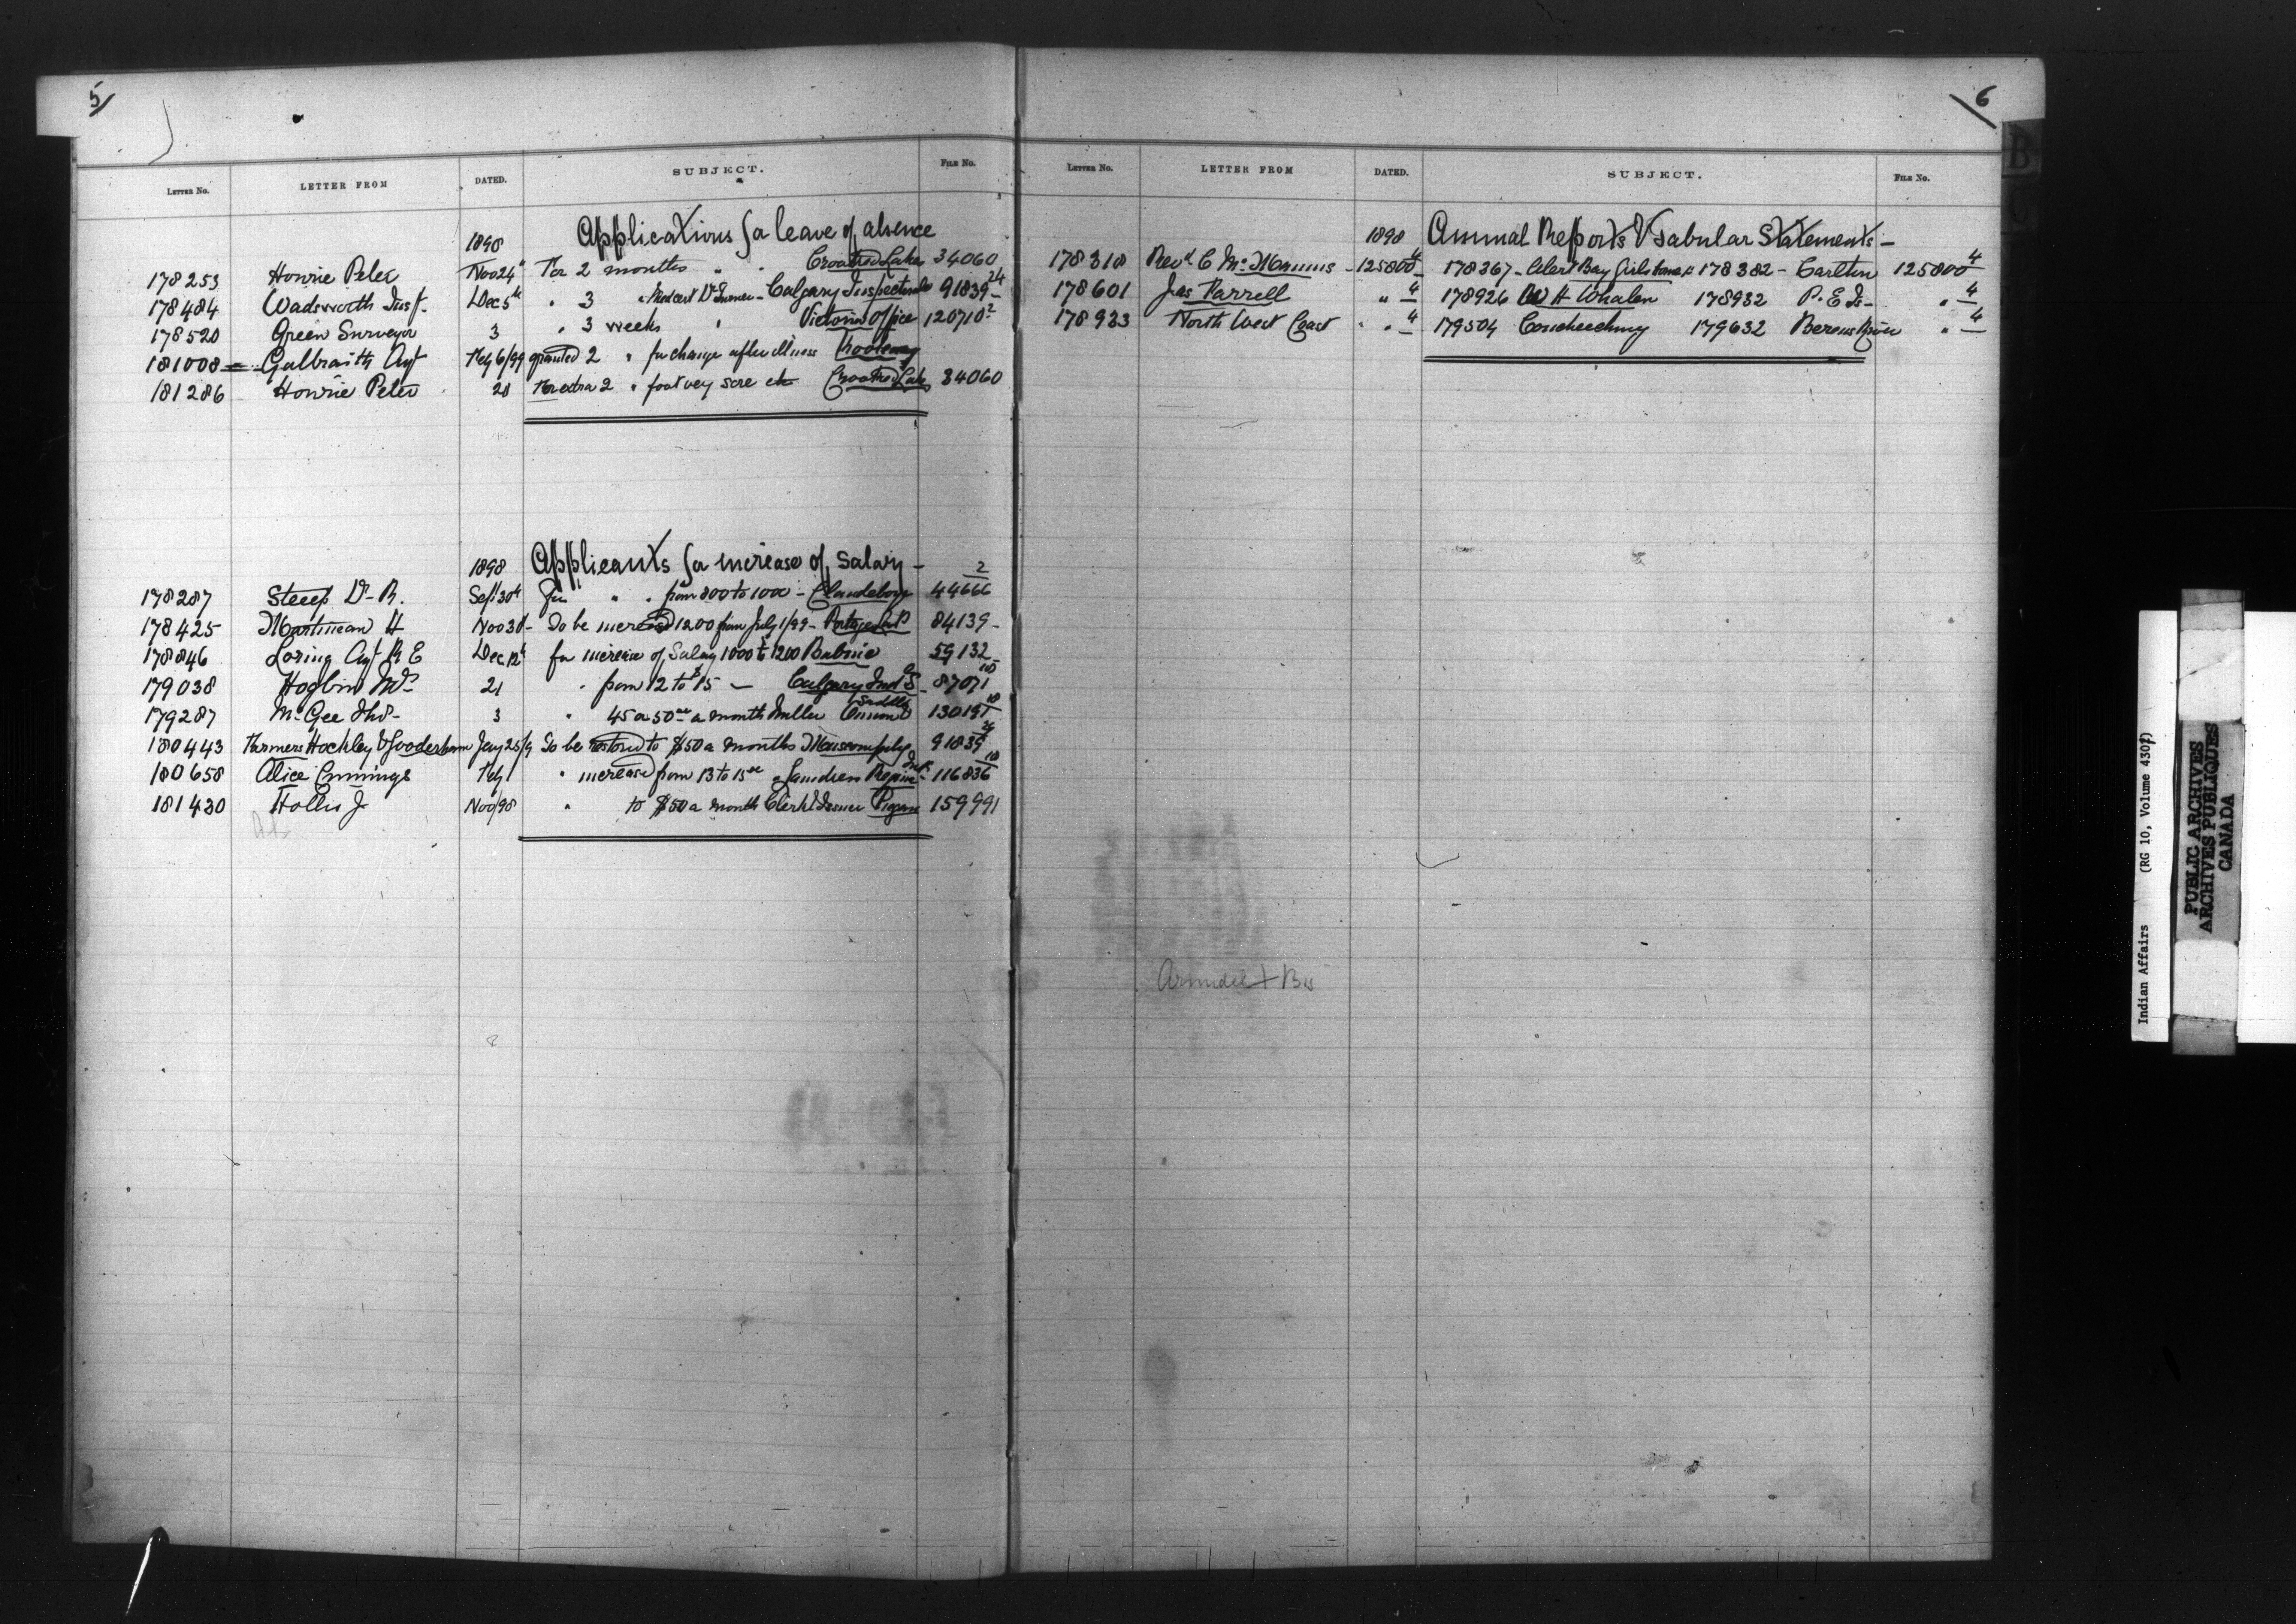 5
LETTER No. LETTER FROM DATED. SUBJECT. FILE No.
1898 Applications for leave of absence
178253 Hourie Peter Nov 24th For 2 months " " Crooked Lakes 34060
178484 Wadsworth Insp. Dec 5th " 3 Calgary Inspectorate 91839 24
178520 Green Surveyor 3 " 3 weeks " Victoria Office 120710 2
181008 Galbraith Agt Feby 6/99 granted 2 " for change after illness Kootenay
181286 Hourie Peter 28 For extra 2 " foot very sore etc Crooked Lake 34060
1898 Applicants for increase of Salary - 2
178287 Steep D. R. Sept 30th for " " from 800 to 1000 - Clandeboye 44666
178425 Martineau H Nov 30 - To be increased 1200 from July 1/99 - Portage La P 84139 -
178846 Loring Agt R E Dec 12th for increase of Salary 1000 to 1200 Babine 59132
179038 Hogbin Mrs 21 " from 12 to $15 - Calgary Ind S - 87071 10
179287 McGee Thos - 3 " 45 or 50 a month Miller Saddle 130197 10
180443 Farmers Hockley & Gooderham Jany 25/9 To be restored to $50 a months 91839 24
180658 Alice Cummings Feby 1 " increase from 13 to 15 Laundress Regina Ind S 116836 10
181430 Hollis J Nov/98 " to $50 a month Clerk & Issuer Piegan 159991
6
LETTER No. LETTER FROM DATED. SUBJECT. FILE No.
1898 Annual Reports & Tabular Statements -
178318 Revd C McManus - 125800 4 - 178367 - Alert Bay Girls home 178382 - Carlton 125800 4
178601 Jas Farrell " 4 178926 W H Whalen 178932 P. E Is - " 4
178933 North West Coast " " 4 179504 Coucheeching 179632 Berens River " 4
Arundel + Bis
Indian Affairs (RG 10, Volume 4307)
PUBLIC ARCHIVES
ARCHIVES PUBLIQUES
CANADA